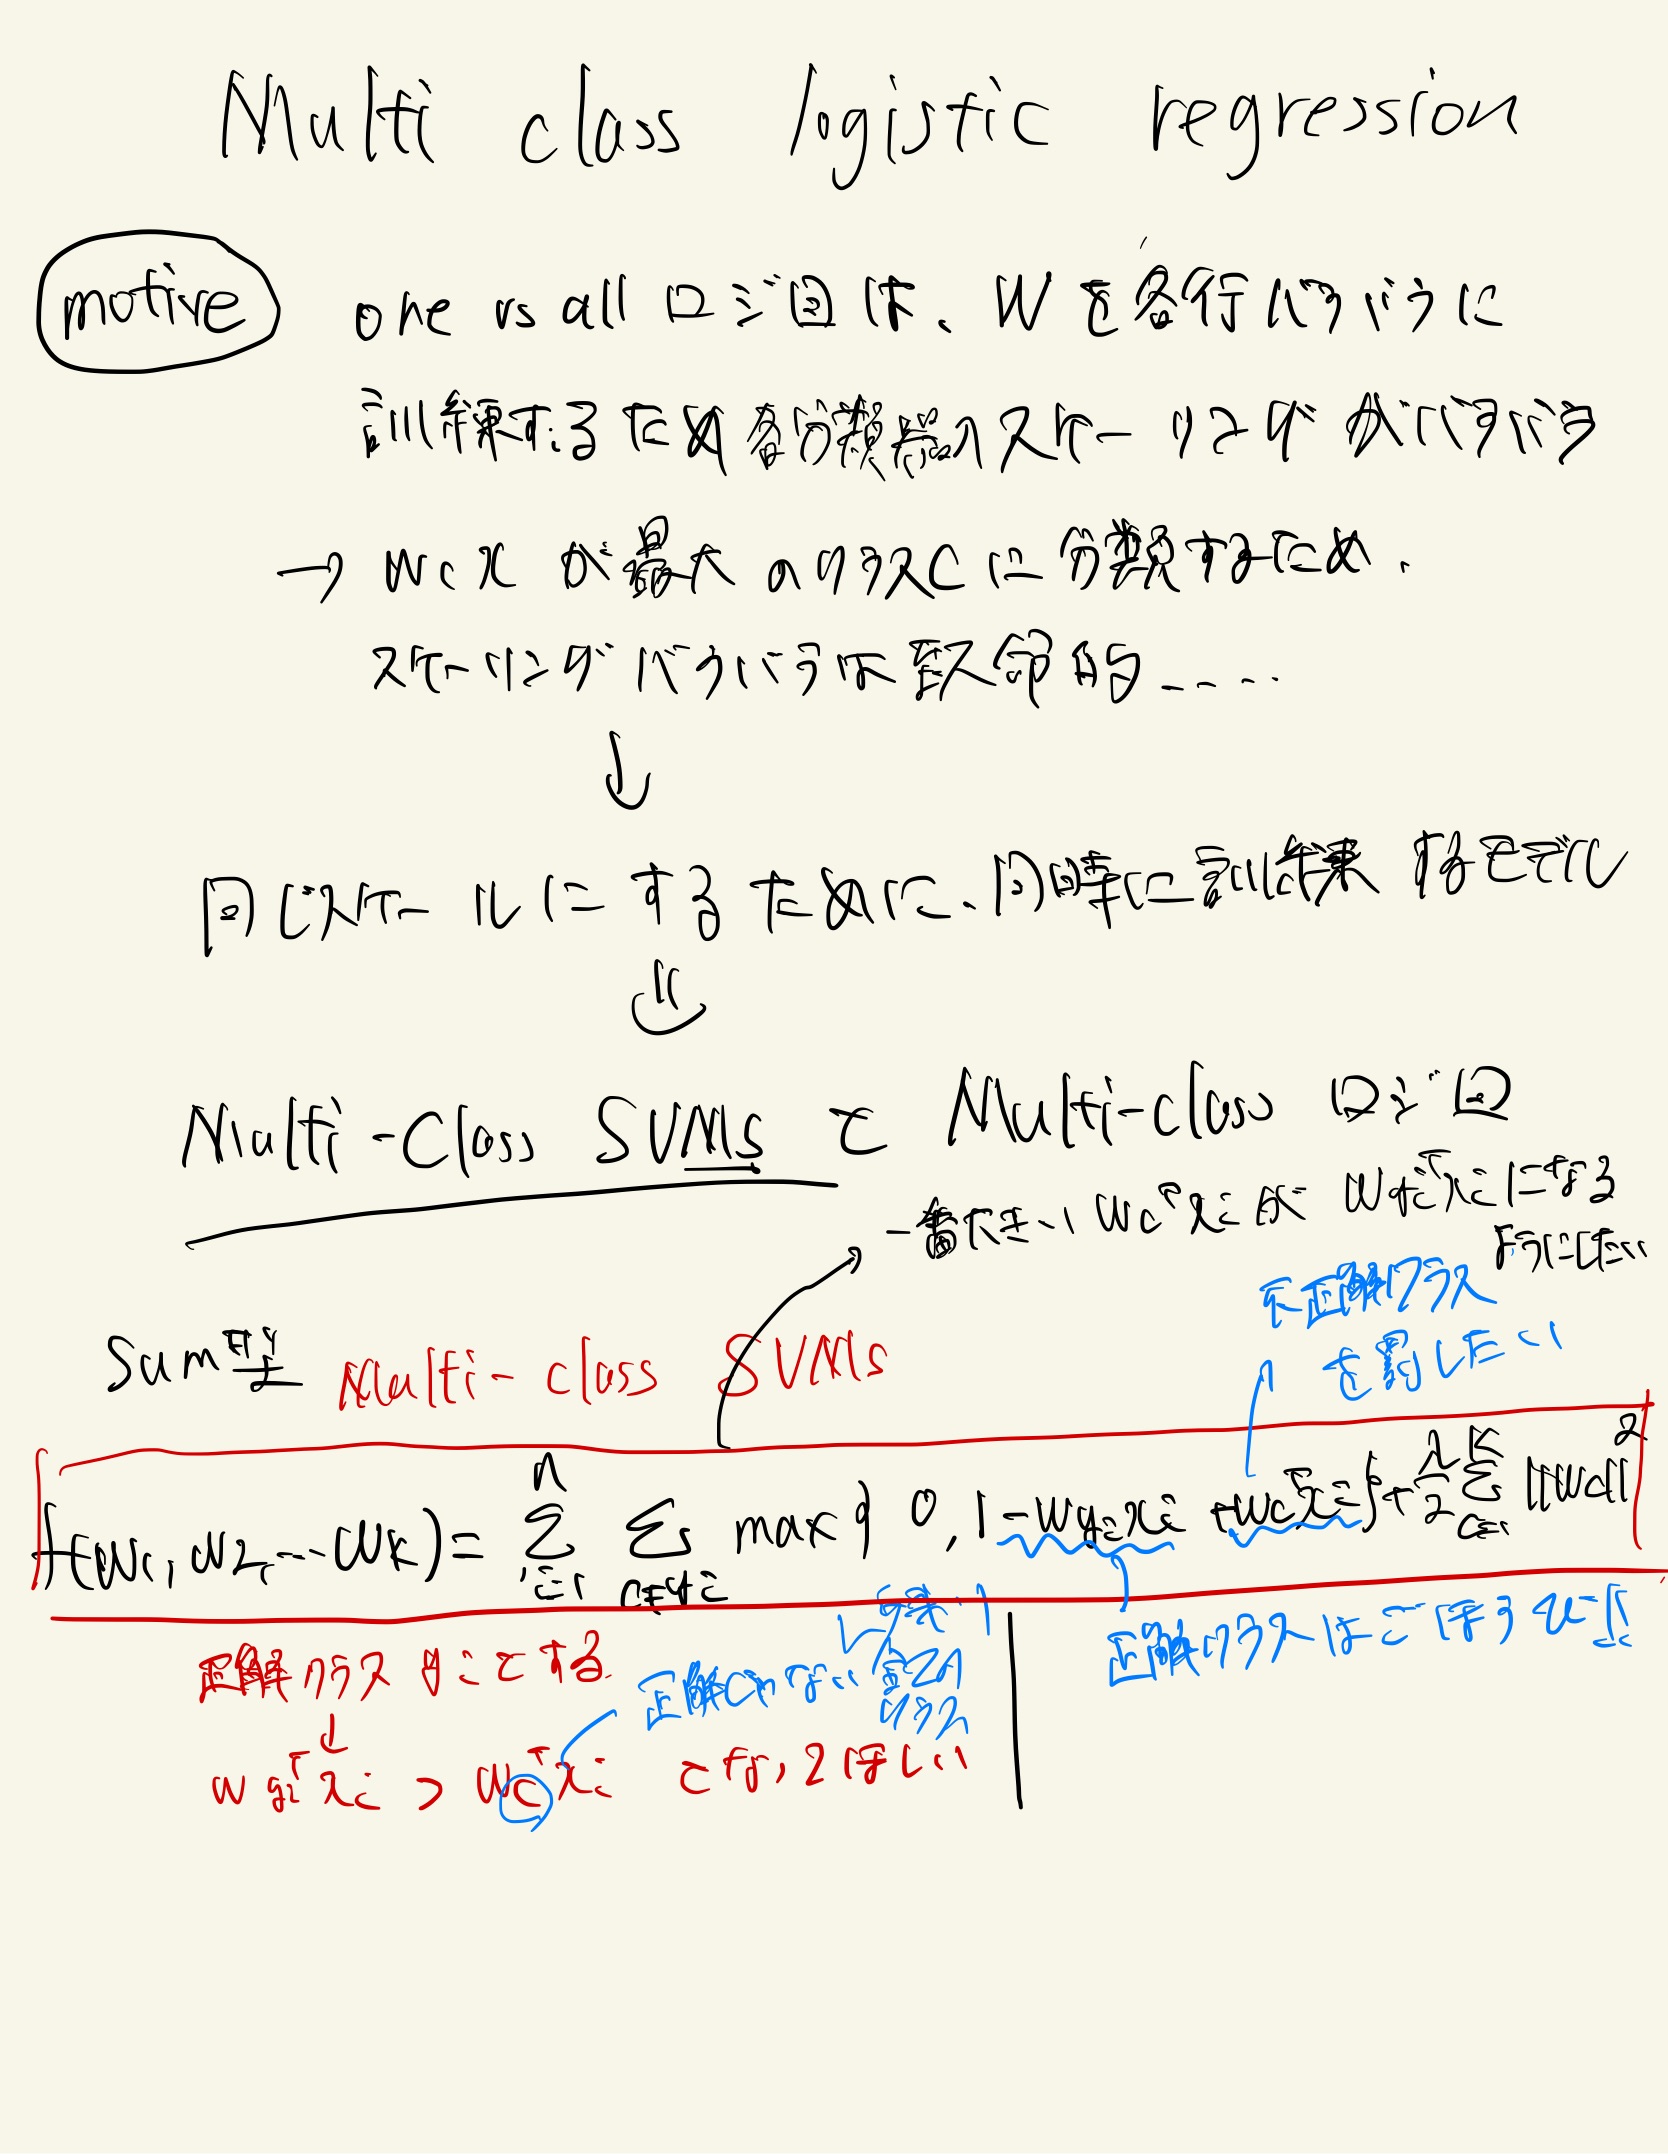 Multi class logistic regression
motive
one vs all ロジ回は、Wを各行バラバラに
訓練するため各分類器のスケーリングがバラバラ
→ wcxが最大のクラスCに分類するため、
スケーリングバラバラは致命的.....
↓
同じスケールにするために、同時に訓練するモデル
⇓
Multi-Class SVMs と Multi-class ロジ回
一番大きい wcᵀxi が wyiᵀxi になる
ようにしたい
不正解クラス
を罰したい
Sum型 Multi-class SVMs
f(w1, w2, … wk) = Σ_{i=1}^{n} Σ_{c≠yi} max{0, 1-wyiᵀxi+wcᵀxi}+λ/2 Σ_{c=1}^{K} ||wc||²
正解クラスはごほうび!!
正解クラス yiとする.
正解じゃない全ての
クラス
↓
wyiᵀxi > wcᵀxi となってほしい